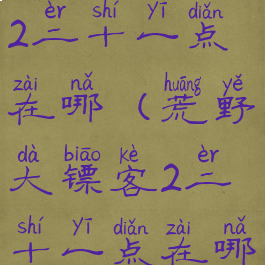 èr shí yī diǎn
2二十一点
zài nǎ huāng yě
在哪（荒野
dà biāo kè èr
大镖客2二
shí yī diǎn zài nǎ
十一点在哪